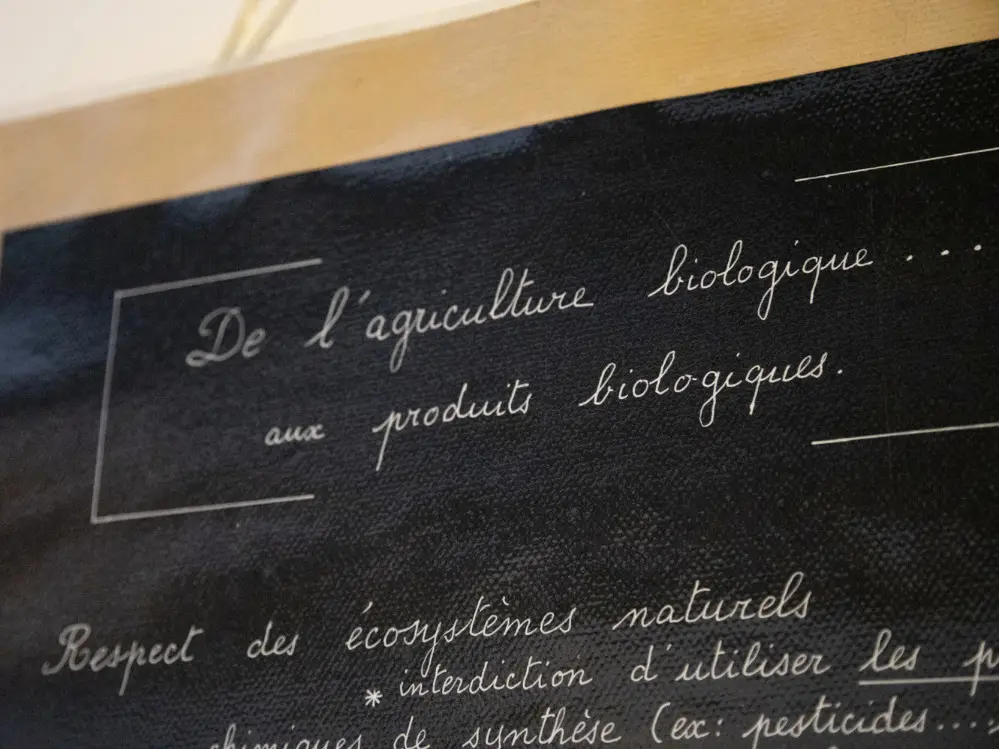 De l'agriculture biologique ....
aux produits biologiques.
Respect des écosystèmes naturels
* interdiction d'utiliser les p
chimiques de synthèse (ex: pesticides...